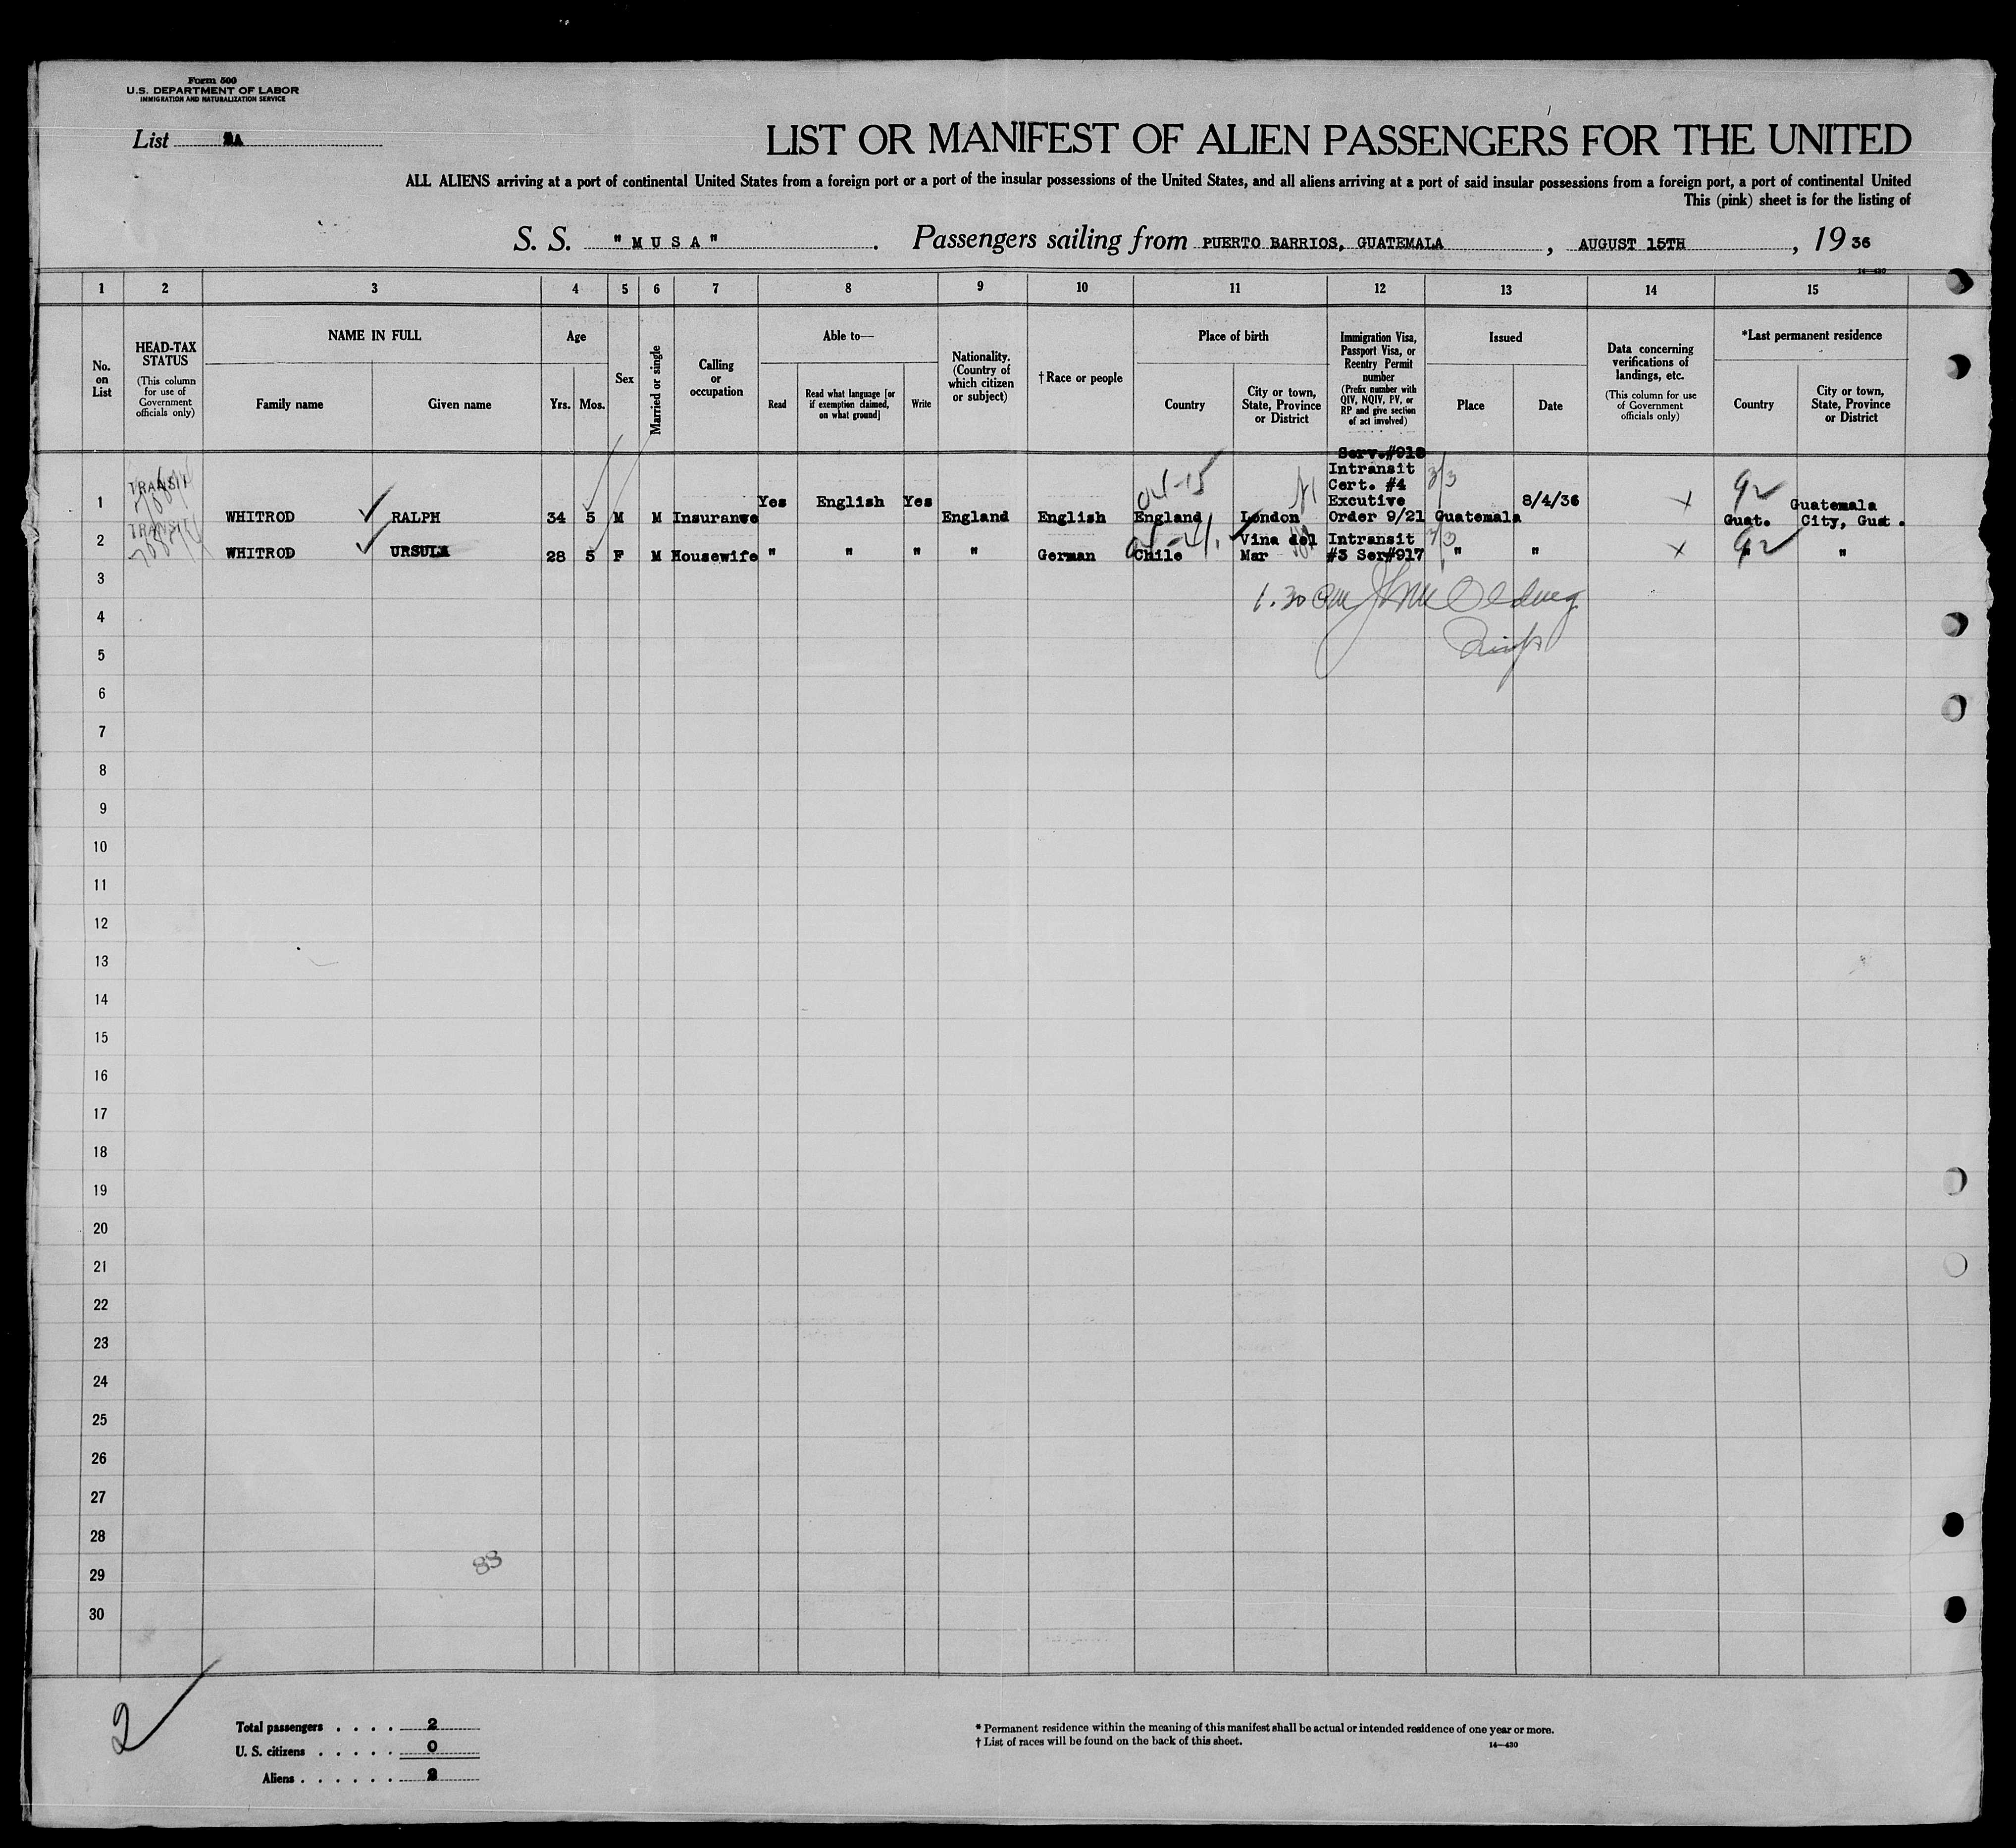 Form 500
U.S. DEPARTMENT OF LABOR
IMMIGRATION AND NATURALIZATION SERVICE
List A
LIST OR MANIFEST OF ALIEN PASSENGERS FOR THE UNITED
ALL ALIENS arriving at a port of continental United States from a foreign port or a port of the insular possessions of the United States, and all aliens arriving at a port of said insular possessions from a foreign port, a port of continental United
This (pink) sheet is for the listing of
S. S. "MUSA". Passengers sailing from PUERTO BARRIOS, GUATEMALA, AUGUST 15TH, 1936
14—430
1 2 3 4 5 6 7 8 9 10 11 12 13 14 15
No. on List
HEAD-TAX STATUS
(This column for use of Government officials only)
NAME IN FULL
Family name Given name
Age
Yrs. Mos.
Sex
Married or single
Calling or occupation
Able to—
Read
Read what language [or if exemption claimed, on what ground]
Write
Nationality. (Country of which citizen or subject)
† Race or people
Place of birth
Country
City or town, State, Province or District
Immigration Visa, Passport Visa, or Reentry Permit number
(Prefix number with QIV, NQIV, PV, or RP and give section of act involved)
Issued
Place Date
Data concerning verifications of landings, etc.
(This column for use of Government officials only)
*Last permanent residence
Country
City or town, State, Province or District
1 TRANSIT WHITROD RALPH 34 5 M M Insuranve Yes English Yes England English England London Serv.#918 Intransit Cert. #4 Excutive Order 9/21 Guatemala 8/4/36 Guat. Guatemala City, Guat.
04-15
3/3
92
2 TRANSIT WHITROD URSULA 28 5 F M Housewife " " " " German Chile Vina del Mar Intransit #3 Ser#917 " " " "
3/3
92
1.30
3
4
5
6
7
8
9
10
11
12
13
14
15
16
17
18
19
20
21
22
23
24
25
26
27
28
83
29
30
2
Total passengers . . . . 2
U. S. citizens . . . . . 0
Aliens . . . . . . 2
* Permanent residence within the meaning of this manifest shall be actual or intended residence of one year or more.
† List of races will be found on the back of this sheet.
14—430